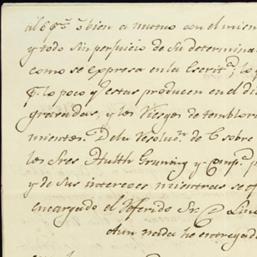 bien a mutuo con el mien
y todo sin perjuicio de su determina
como se expresa en la Escrit.ª
lo poco q estas producen en el di
gravadas, y los riesgos de temblor
mientes. De la resoluc.n de C sobre
los Sres Huth Gruning y Comp.ª p
y de sus intereses mientras se
encargado el referido Sr. D. Lin
aun nada he entregado